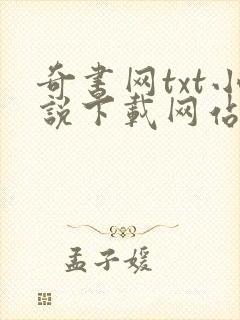 奇書网txt小
說下載网佔
孟子媛